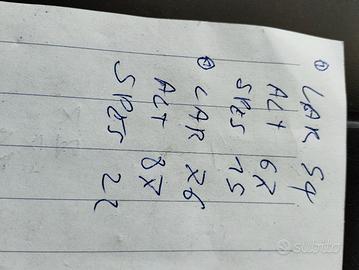 ① LAR 54
ALT 67
SPES 15
② LAR 76
ALT 87
SPES 22
subito